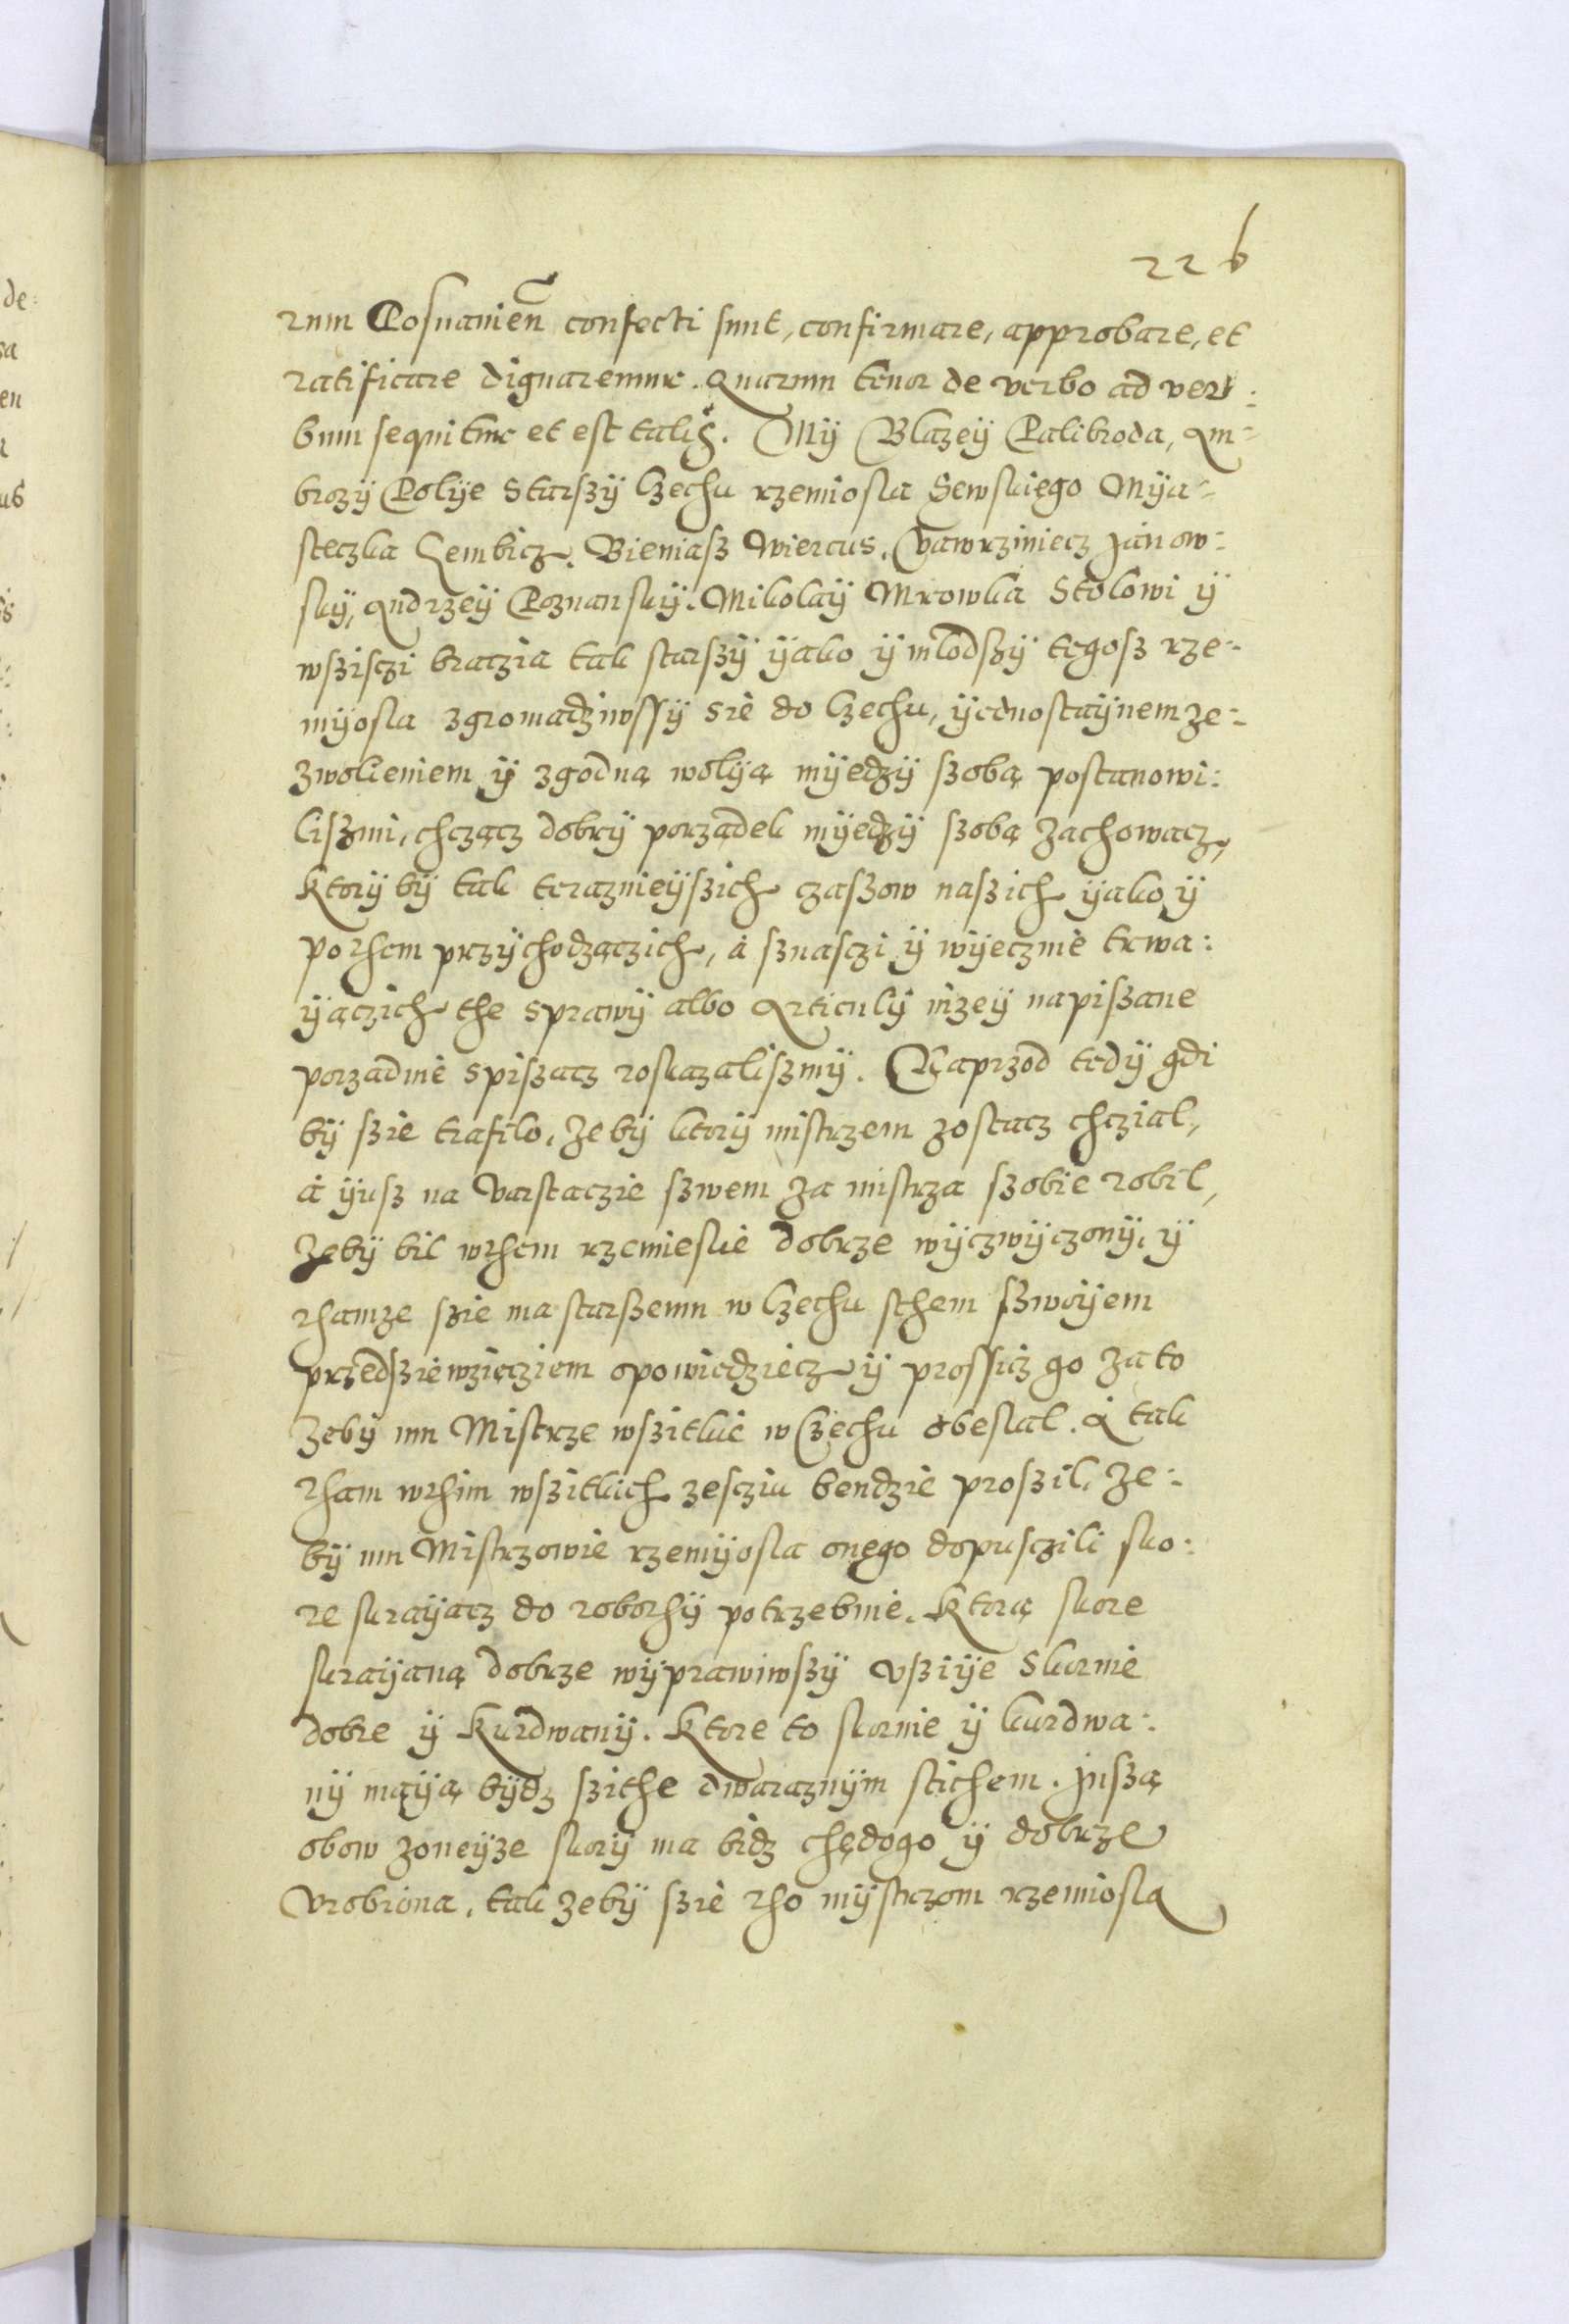 226
rum Posnanien̄ confecti sunt, confirmare, approbare, et
ratificare dignaremur. Quarum tenor de verbo ad ver:
bum sequitur et est talis. My Blazeÿ Palibroda, Am=
brozÿ Polÿe Starszÿ Czechu rzemiosla Sewskiego Mÿa=
steczka Kembicz. Bieniasz Wiercus, Wawrziniecz Janow:
skÿ, Andrzeÿ Poznanskÿ. Mikolaÿ Mrowka Stolowi ÿ
wszisczi braczia tak starszÿ ÿako ÿ mlodszÿ tegosz rze=
mÿosla zgromadziwssÿ sie do Czechu, ÿednostaÿnem ze=
zwolieniem ÿ zgodną wolÿą mÿedzÿ szobą postanowi:
liszmi, chcząc dobrÿ porządek mÿedzÿ szobą zachowacz,
ktorÿ bÿ tak teraznieÿszich czaszow naszich ÿako ÿ
pothem przÿchodzączich, á sznasczi ÿ wÿecznie trwa:
ÿączich the sprawÿ albo Articulÿ nizeÿ napiszane
porzadnie spiszacz roskazaliszmÿ. Naprzod tedÿ gdi
bÿ szie trafilo, ze bÿ ktorÿ mistrzem zostacz chczial,
á ÿusz na Varstaczie szwem za mistrza szobie robil,
Zebÿ bil wthem rzemieslie dobrze wÿczwÿczonÿ, ÿ
thamze szie ma starszemu w Czechu sthem szwoÿem
przedsziewzięcziem opowiedziecz ÿ prossicz go za to
zebÿ mu Mistrze wszitkie w Czechu obeslal. A tak
tham wthim wszitkich zescziu bendzie proszil, ze=
bÿ mu Mistrzowie rzemÿosla onego dopusczili sko:
re skraÿacz do robothÿ potrzebnie. Ktorą skore
skraÿaną dobrze wÿprawiwszÿ vsziÿe Skornie
dobre ÿ Kurdwanÿ. Ktore to skornie ÿ kurdwa:
nÿ maÿą bÿdz szithe dwaraznÿm stichem. Jnszą
obow zoneÿze skorÿ ma bidz chędogo ÿ dobrze
Vrobiona, tak zebÿ szie tho mÿstrzom rzemiosla